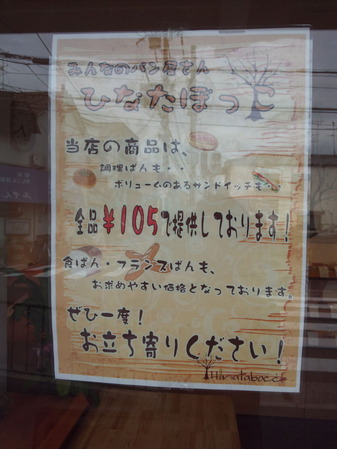 みんなのパン屋さん
ひなたぼっこ
当店の商品は、
調理ぱんも・・
ボリュームのあるサンドイッチも・・
全品￥105で提供しております！
食ぱん・フランスぱんも、
お求めやすい価格となっております。
ぜひ一度！
お立ち寄りください！
Hinatabocco